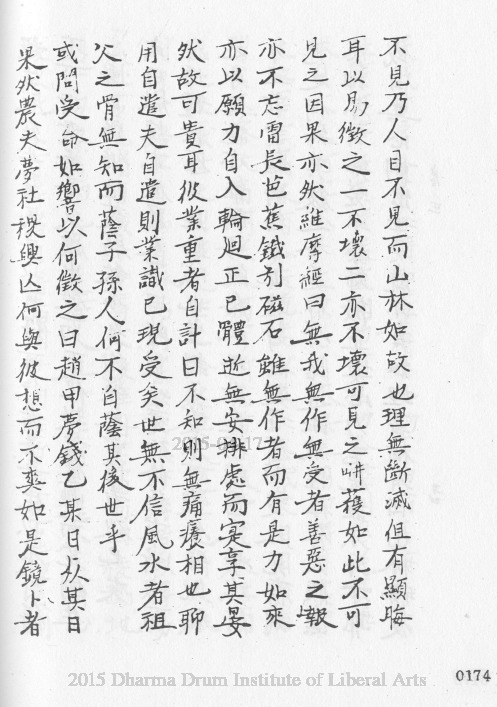 不見乃人目不見而山林如故也理無斷滅但有顯晦
耳以易徵之一不壞二亦不壞可見之耕穫如此不可
見之因果亦然維摩經曰無我無作無受者善惡之報
亦不忘雷長芭蕉鐵引磁石雖無作者而有是力如來
亦以願力自入輪迴正己體逝無安排處而寔享其晏
然故可貴耳彼業重者自計曰不知則無痛癢相也聊
用自遣夫自遣則業識已現受矣世無不信風水者祖
父之骨無知而蔭子孫人何不自蔭其後世乎
或問受命如響以何徵之曰趙甲夢錢乙某日及其日
果然農夫夢社稷與亾何與彼想而不爽如是鏡卜者
2015-03-17
2015 Dharma Drum Institute of Liberal Arts
0174